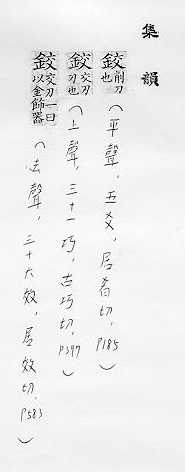 集韻
鉸削刀也(平聲,五爻,居肴切,P185)
鉸交刀刃也(上聲,三十一巧,古巧切,P397)
鉸交刀一曰以金飾器(去聲,三十六效,居效切,P583)